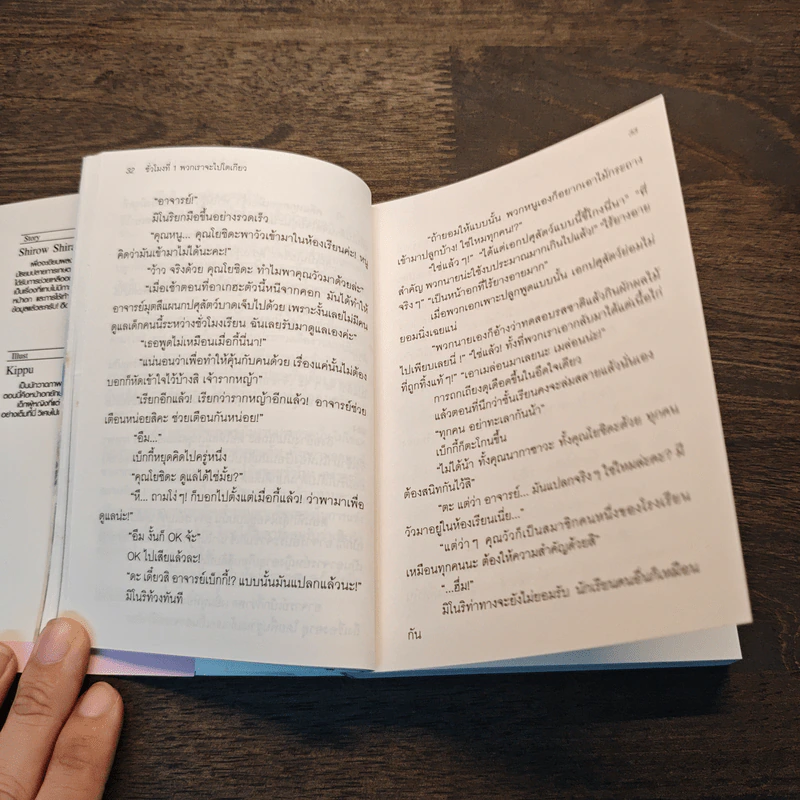 Story
Shirow Shira
Illust
Kippu
32 ชั่วโมงที่ 1 พวกเราจะไปโตเกียว
"อาจารย์!"
มิโนริยกมือขึ้นอย่างรวดเร็ว
"คุณหนู... คุณโยชิดะพาวัวเข้ามาในห้องเรียนค่ะ! หนู
คิดว่ามันเข้ามาไม่ได้นะคะ!"
"ว้าว จริงด้วย คุณโยชิดะ ทำไมพาคุณวัวมาด้วยล่ะ"
"เมื่อเช้าตอนที่อาเกฮะตัวนี้หนีจากคอก มันได้ทำให้
อาจารย์มุตสึแผนกปศุสัตว์บาดเจ็บไปด้วย เพราะงั้นเลยไม่มีคน
ดูแลเด็กคนนี้ระหว่างชั่วโมงเรียน ฉันเลยรับมาดูแลเองค่ะ"
"เธอพูดไม่เหมือนเมื่อกี้นี่นา!"
"แน่นอนว่าเพื่อทำให้คุ้นกับคนด้วย เรื่องแค่นั้นไม่ต้อง
บอกก็หัดเข้าใจไว้บ้างสิ เจ้ารากหญ้า"
"เรียกอีกแล้ว! เรียกว่ารากหญ้าอีกแล้ว! อาจารย์ช่วย
เตือนหน่อยสิคะ ช่วยเตือนกันหน่อย!"
"อืม..."
เบ็กกี้หยุดคิดไปครู่หนึ่ง
"คุณโยชิดะ ดูแลได้ใช่มั้ย?"
"หึ... ถามโง่ๆ! ก็บอกไปตั้งแต่เมื่อกี้แล้ว! ว่าพามาเพื่อ
ดูแลน่ะ!"
"อืม งั้นก็ OK จ้ะ"
OK ไปเสียแล้วล่ะ!
"ดะ เดี๋ยวสิ อาจารย์เบ็กกี้!? แบบนั้นมันแปลกแล้วนะ!"
มิโนริท้วงทันที
33
"ถ้ายอมให้แบบนั้น พวกหนูเองก็อยากเอาไม้กระถาง
เข้ามาปลูกบ้าง! ใช่ไหมทุกคน!?"
"ใช่แล้วๆ!" "ได้แต่เอกปศุสัตว์แบบนี้ขี้โกงนี่นา" "สู่
สำคัญ พวกนายน่ะใช้งบประมาณมากเกินไปแล้ว!" "ไร้ยางอาย
จริงๆ" "เป็นหน้าอกที่ไร้ยางอายมาก"
เมื่อพวกเอกเพาะปลูกพูดแบบนั้น เอกปศุสัตว์ย่อมไม่
ยอมนิ่งเฉยแน่
"พวกนายเองก็อ้างว่าทดสอบรสชาติแล้วกินผักผลไม้
ไปเพียบเลยนี่!" "ใช่แล้ว! ทั้งที่พวกเราเอากลับมาได้แต่เนื้อไก่
ที่ถูกทิ้งแท้ๆ!" "เอาเมล่อนมาเลยนะ เมล่อนน่ะ!"
การถกเถียงดุเดือดขึ้นในอึดใจเดียว
แล้วตอนที่นึกว่าชั้นเรียนคงจะล่มสลายแล้วนั่นเอง
"ทุกคน อย่าทะเลากันน้า"
เบ็กกี้ก็ตะโกนขึ้น
"ไม่ได้น้า ทั้งคุณนากาซาวะ ทั้งคุณโยชิดะด้วย ทุกคน
ต้องสนิทกันไว้สิ"
"ตะ แต่ว่า อาจารย์... มันแปลกจริงๆ ใช่ไหมล่ะคะ? มี
วัวมาอยู่ในห้องเรียนเนี่ย..."
"แต่ว่าๆ คุณวัวก็เป็นสมาชิกคนหนึ่งของโรงเรียน
เหมือนทุกคนนะ ต้องให้ความสำคัญด้วยสิ"
"...อื่ม!"
มิโนริท่าทางจะยังไม่ยอมรับ นักเรียนคนอื่นก็เหมือน
กัน